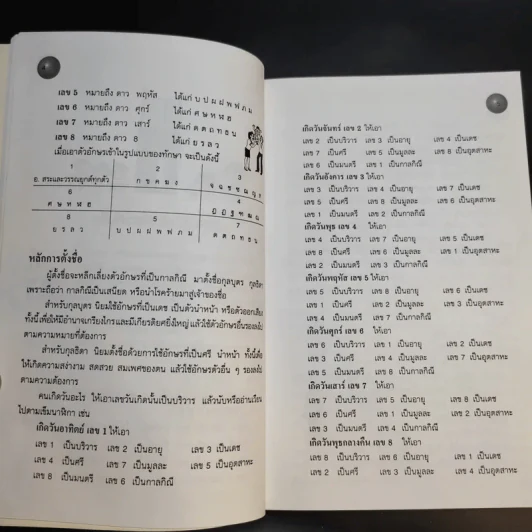 เลข 5 หมายถึง ดาว พฤหัส ได้แก่ บ ป ผ ฝ พ ฟ ภ ม
เลข 6 หมายถึง ดาว ศุกร์ ได้แก่ ศ ษ ห ฬ ฮ
เลข 7 หมายถึง ดาว เสาร์ ได้แก่ ด ต ถ ท ธ น
เลข 8 หมายถึง ดาว 8 ได้แก่ ย ร ล ว
เมื่อเอาตัวอักษรเข้าในรูปแบบของทักษา จะเป็นดังนี้
1 2 3
อ. สระและวรรณยุกต์ทุกตัว ก ข ค ฆ ง จ ฉ ช ซ ฌ ญ
6 4
ศ ษ ห ฬ ฮ
8 5 7
ย ร ล ว บ ป ผ ฝ พ ฟ ภ ม ด ต ถ ท ธ น
หลักการตั้งชื่อ
ผู้ตั้งชื่อจะหลีกเลี่ยงตัวอักษรที่เป็นกาลกิณี มาตั้งชื่อกุลบุตร กุลธิดา
เพราะถือว่า กาลกิณีเป็นเสนียด หรือนำโรคร้ายมาสู่เจ้าของชื่อ
สำหรับกุลบุตร นิยมใช้อักษรที่เป็นเดช เป็นตัวนำหน้า หรือตัวออกเสียง
ทั้งนี้เพื่อให้มีอำนาจเกรียงไกร และมีเกียรติยศยิ่งใหญ่ แล้วใช้ตัวอักษรอื่นรองลงไป
ตามความหมายที่ต้องการ
สำหรับกุลธิดา นิยมตั้งชื่อด้วยการใช้อักษรที่เป็นศรี นำหน้า ทั้งนี้เพื่อ
ให้เกิดความสง่างาม สดสวย สมเพศของตน แล้วใช้อักษรตัวอื่น ๆ รองลงไป
ตามความต้องการ
คนเกิดวันอะไร ให้เอาเลขวันเกิดนั้นเป็นบริวาร แล้วนับหรืออ่านเวียน
ไปตามเข็มนาฬิกา เช่น
เกิดวันอาทิตย์ เลข 1 ให้เอา
เลข 1 เป็นบริวาร เลข 2 เป็นอายุ เลข 3 เป็นเดช
เลข 4 เป็นศรี เลข 7 เป็นมูลละ เลข 5 เป็นอุตสาหะ
เลข 8 เป็นมนตรี เลข 6 เป็นกาลกิณี
เกิดวันจันทร์ เลข 2 ให้เอา
เลข 2 เป็นบริวาร เลข 3 เป็นอายุ เลข 4 เป็นเดช
เลข 7 เป็นศรี เลข 5 เป็นมูลละ เลข 8 เป็นอุตสาหะ
เลข 6 เป็นมนตรี เลข 1 เป็นกาลกิณี
เกิดวันอังคาร เลข 3 ให้เอา
เลข 3 เป็นบริวาร เลข 4 เป็นอายุ เลข 7 เป็นเดช
เลข 5 เป็นศรี เลข 8 เป็นมูลละ เลข 6 เป็นอุตสาหะ
เลข 1 เป็นมนตรี เลข 2 เป็นกาลกิณี
เกิดวันพุธ เลข 4 ให้เอา
เลข 4 เป็นบริวาร เลข 7 เป็นอายุ เลข 5 เป็นเดช
เลข 8 เป็นศรี เลข 6 เป็นมูลละ เลข 1 เป็นอุตสาหะ
เลข 2 เป็นมนตรี เลข 3 เป็นกาลกิณี
เกิดวันพฤหัส เลข 5 ให้เอา
เลข 5 เป็นบริวาร เลข 8 เป็นอายุ เลข 6 เป็นเดช
เลข 1 เป็นศรี เลข 2 เป็นมูลละ เลข 3 เป็นอุตสาหะ
เลข 4 เป็นมนตรี เลข 7 เป็นกาลกิณี
เกิดวันศุกร์ เลข 6 ให้เอา
เลข 6 เป็นบริวาร เลข 1 เป็นอายุ เลข 2 เป็นเดช
เลข 3 เป็นศรี เลข 4 เป็นมูลละ เลข 7 เป็นอุตสาหะ
เลข 5 เป็นมนตรี เลข 8 เป็นกาลกิณี
เกิดวันเสาร์ เลข 7 ให้เอา
เลข 7 เป็นบริวาร เลข 5 เป็นอายุ เลข 8 เป็นเดช
เลข 6 เป็นศรี เลข 1 เป็นมูลละ เลข 2 เป็นอุตสาหะ
เลข 3 เป็นมนตรี เลข 4 เป็นกาลกิณี
เกิดวันพุธกลางคืน เลข 8 ให้เอา
เลข 8 เป็นบริวาร เลข 6 เป็นอายุ เลข 1 เป็นเดช
เลข 2 เป็นศรี เลข 3 เป็นมูลละ เลข 4 เป็นอุตสาหะ